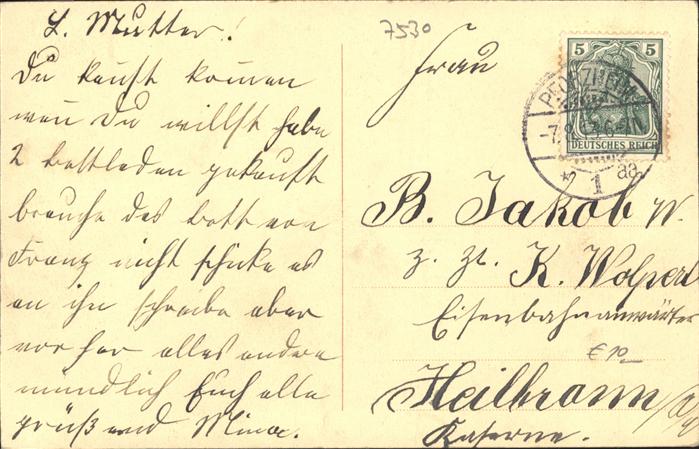 L. Mutter!
Du kanst komen
wen Du willst habe
2 bettladen gekauft
brauche das bett von
Franz nicht schicke es
an ihn schreibe aber
vor her alles andere
mündlich Euch alle
grüßend Mina.
7530
Frau
5 5
DEUTSCHES REICH
PFORZHEIM
* 1 aa
B. Jakob W.
z. Zt. K. Wolpert
Eisenbahnanwärter
€ 10
Heilbronn a/N
Kaserne.